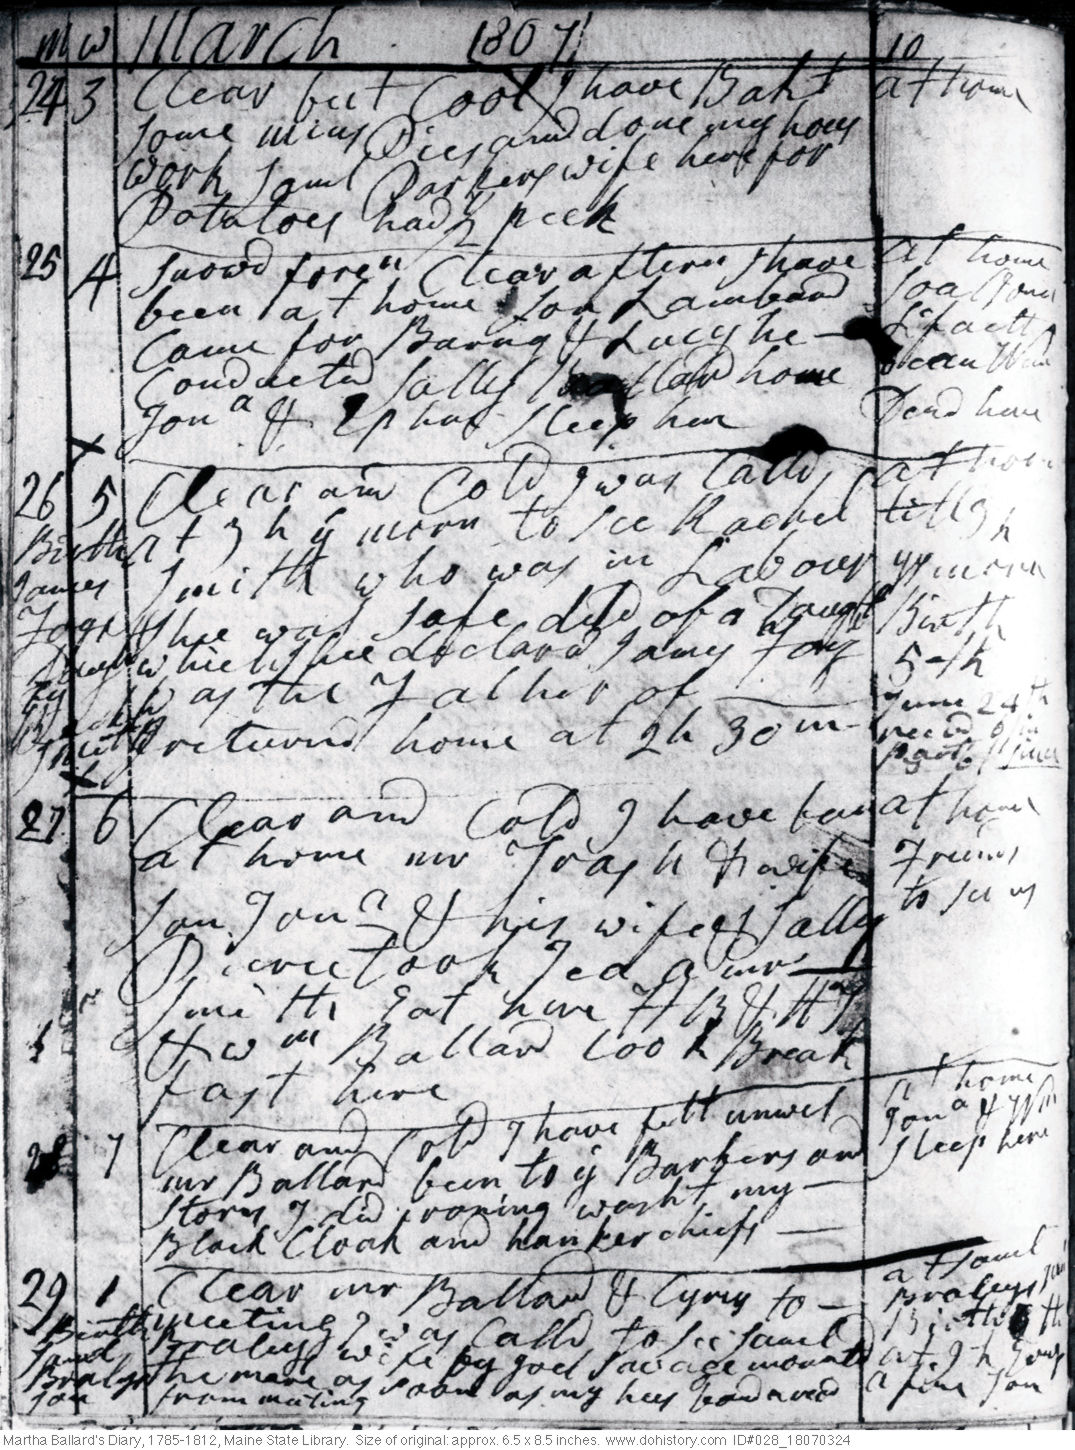 m w March 1807 10
24 3 Clear but Cool I have Bakt
at home
some mins Pies and done my hous
work Saml Barkers wife here for
Potatoes had ½ peck
25 4 snowd foren Clear aftern I have
at home
been at home son Lambard
Came for Barna & Lucy he
Conducted Sally Ballard home
Jona & Ephm Sleep here
26 5 Clear and Cold I was Calld
at home
at 3 h ÿ morn to see Rachel
till 3 h
Smith who was in Labour
ÿ morn
she was safe deld of a Daught
Birth
which she declard James Fogg
5th
was the Father of
June 24th
I returnd home at 2h 30 m
Birth
James
27 6 Clear and Cold I have been
at home
at home mr Trask & wife
Friends
son Jona & his wife & Sally
to see us
Pierce took Tea a mrs
Smith Eat here
& wm Ballard took Break
fast here
28 7 Clear and Cold I have felt unwel
at home
Jona &
mr Ballard been to ÿ Barkers and
Sleep here
Stores I did ironing washt my
Black Cloak and hankerchiefs
29 1 Clear mr Ballard & Cyrus to
at Saml
meeting I was Calld to see Saml
Braleys
Braleys wife by Joel Savage mount
Birth 6th
the mare as soon as my hus band arivd
from meeting
a fine son
Birth
Saml
Braleys
son
Martha Ballard's Diary, 1785-1812, Maine State Library. Size of original: approx. 6.5 x 8.5 inches. www.dohistory.com ID#028_18070324